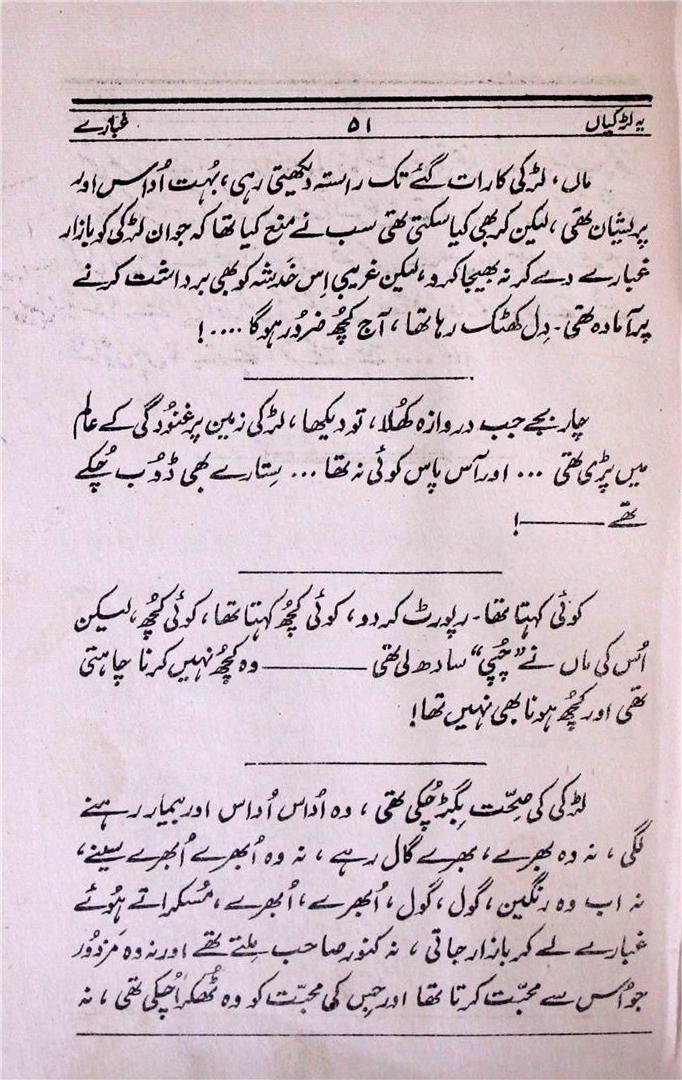 یہ لڑکیاں ۵۱ غبارے
ماں، لڑکی کا رات گئے تک راستہ دیکھیتی رہی، بُہت اُداس اور
پریشان تھی، لیکن کر بھی کیا سکتی تھی سب نے منع کیا تھا کہ جوان لڑکی کو بازار
غبارے دے کر نہ بھیجا کرو، لیکن غریبی اِس خَدشہ کو بھی برداشت کرنے
پر آمادہ تھی۔ دِل کھٹک رہا تھا، آج کچھُ ضرور ہوگا ....!
چار بجے جب دروازہ کھُلا، تو دیکھا، لڑکی زمین پر غنُودگی کے عالم
میں پڑی تھی ... اور آس پاس کوئی نہ تھا ... سِتارے بھی ڈوُب چُکے
تھے ——— !
کوئی کہتا تھا۔ رپورٹ کردو، کوئی کچھُ کہتا تھا، کوئی کچھُ، لیکن
اُس کی ماں نے ”چُپی“ سادھ لی تھی ——— وہ کچھُ نہیں کرنا چاہتی
تھی اور کچھُ ہونا بھی نہیں تھا!
لڑکی کی صِحّت بِگڑ چُکی تھی، وہ اُداس اُداس اور بیمار رہنے
لگی، نہ وہ بھرے، بھرے گال رہے، نہ وہ اُبھرے اُبھرے سینے،
نہ اب وہ رنگین، گول، گول، اُبھرے، اُبھرے، مُسکراتے ہُوئے
غبارے لے کر بازار جاتی، نہ کنور صاحب مِلتے تھے اور نہ وہ مَزدُور
جو اُس سے محبّت کرتا تھا اور جِس کی محبّت کو وہ ٹھُکرا چُکی تھی، نہ